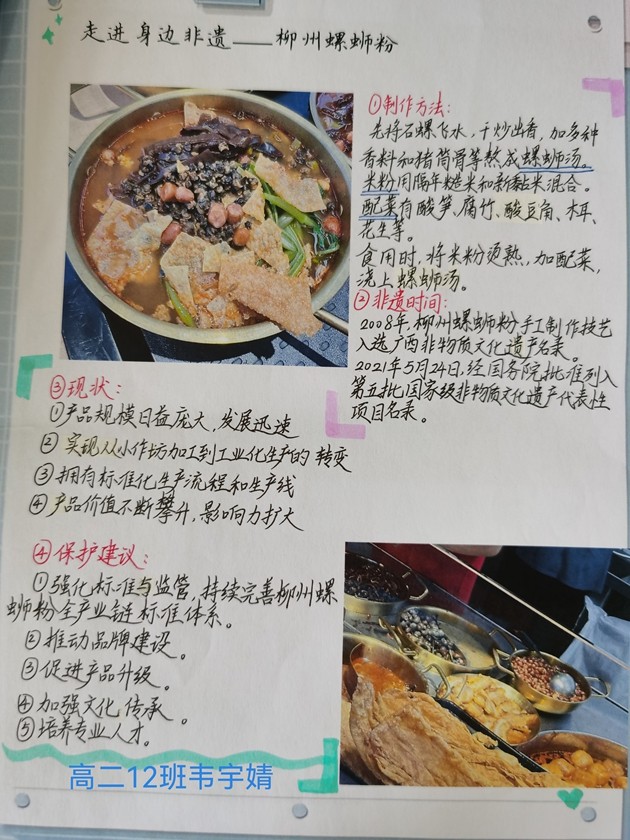 走进身边非遗——柳州螺蛳粉
①制作方法:
先将石螺飞水,干炒出香,加多种
香料和猪筒骨等熬成螺蛳汤。
米粉用隔年糙米和新黏米混合。
配菜有酸笋、腐竹、酸豆角、木耳、
花生等。
食用时,将米粉烫熟,加配菜,
浇上螺蛳汤。
②非遗时间:
2008年,柳州螺蛳粉手工制作技艺
入选广西非物质文化遗产名录。
2021年5月24日,经国务院批准列入
第五批国家级非物质文化遗产代表性
项目名录。
③现状:
①产品规模日益庞大,发展迅速
②实现从小作坊加工到工业化生产的转变
③拥有标准化生产流程和生产线
④产品价值不断攀升,影响力扩大
④保护建议:
①强化标准与监管,持续完善柳州螺
蛳粉全产业链标准体系。
②推动品牌建设。
③促进产品升级。
④加强文化传承。
⑤培养专业人才。
高二12班韦宇婧